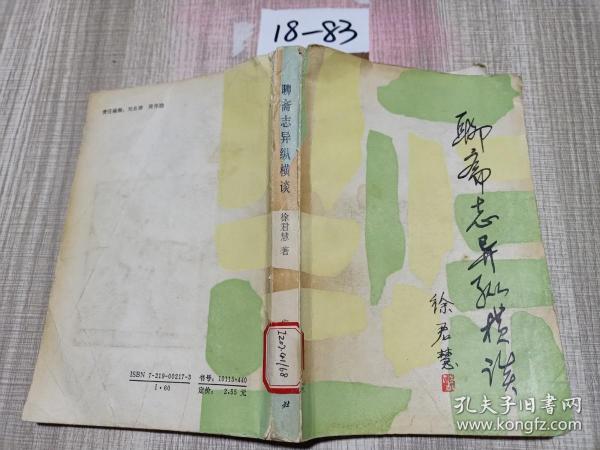 18-83
责任编辑：
聊斋志异纵横谈
徐君慧 著
I207.01/68
社
ISBN 7-219-00217-3
I·60
书号：10113·440
定价：2.55 元
聊斋志异纵横谈
徐君慧
孔夫子旧书网
www.kongfz.com